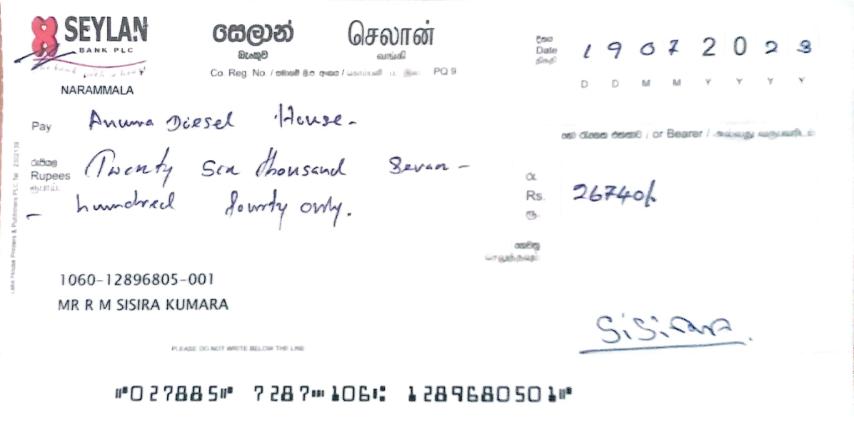 SEYLAN
BANK PLC
සෙලාන්
බැංකුව
செலான்
வங்கி
Co Reg. No / සමාගම් ලි.ප අංකය / PQ 9
දිනය
Date
திகதி
19072023
D D M M Y Y Y Y
NARAMMALA
Pay Anura Diesel House-
or Bearer /
රුපියල්
Rupees Twenty Six thousand Sevan -
ரூபாய்
- hundred fourty only.
රු
Rs. 26740/-
ரூ
1060-12896805-001
MR R M SISIRA KUMARA
Sisirara.
PLEASE DO NOT WRITE BELOW THE LINE
⑈027885⑈ 7287⑉106⑆ 128968050 1⑈